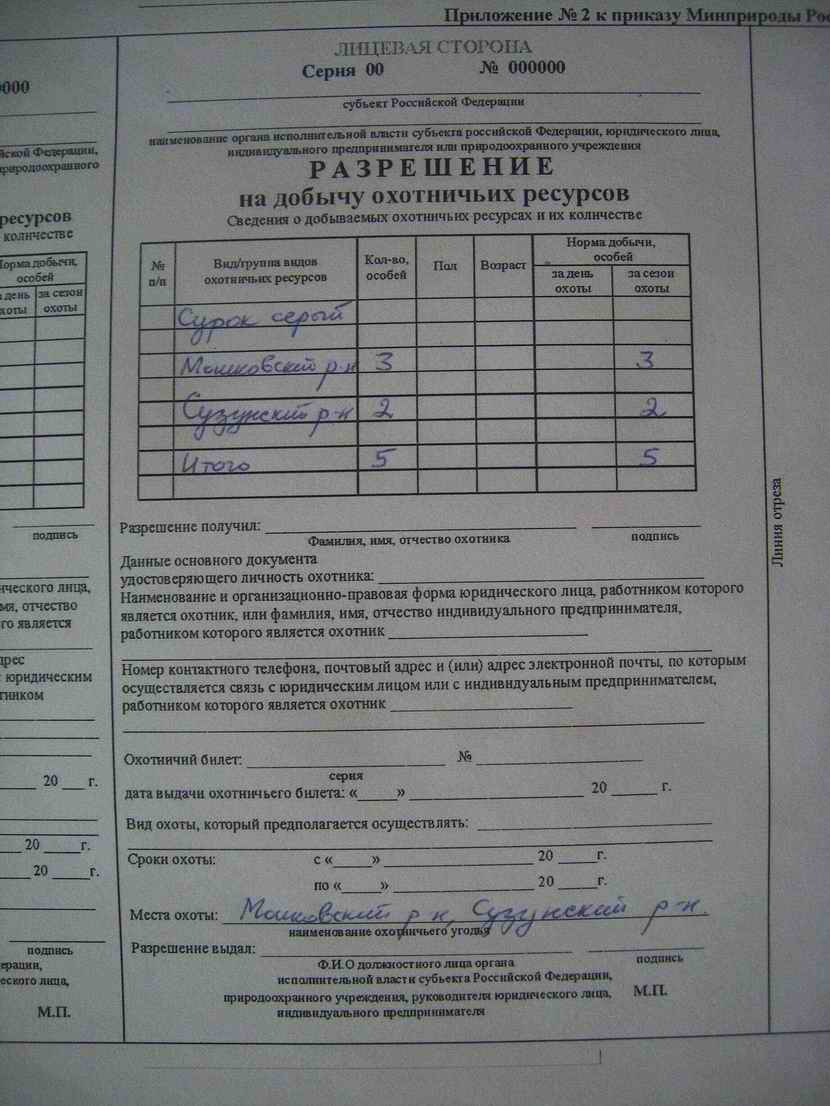 Приложение № 2 к приказу Минприроды Рос
ЛИЦЕВАЯ СТОРОНА
Серия 00 № 000000
субъект Российской Федерации
наименование органа исполнительной власти субъекта российской Федерации, юридического лица,
индивидуального предпринимателя или природоохранного учреждения
РАЗРЕШЕНИЕ
на добычу охотничьих ресурсов
Сведения о добываемых охотничьих ресурсах и их количестве
№ п/п Вид/группа видов охотничьих ресурсов Кол-во, особей Пол Возраст Норма добычи, особей
за день охоты за сезон охоты
Сурок серый
Мошковский р-н 3 3
Сузунский р-н 2 2
Итого 5 5
Разрешение получил:
Фамилия, имя, отчество охотника подпись
Данные основного документа
удостоверяющего личность охотника:
Наименование и организационно-правовая форма юридического лица, работником которого
является охотник, или фамилия, имя, отчество индивидуального предпринимателя,
работником которого является охотник
Номер контактного телефона, почтовый адрес и (или) адрес электронной почты, по которым
осуществляется связь с юридическим лицом или с индивидуальным предпринимателем,
работником которого является охотник
Охотничий билет: №
серия
дата выдачи охотничьего билета: « » 20 г.
Вид охоты, который предполагается осуществлять:
Сроки охоты: с « » 20 г.
по « » 20 г.
Места охоты: Мошковский р-н, Сузунский р-н.
наименование охотничьего угодья
Разрешение выдал:
Ф.И.О должностного лица органа подпись
исполнительной власти субъекта Российской Федерации,
природоохранного учреждения, руководителя юридического лица, М.П.
индивидуального предпринимателя
Линия отреза
0000
йской Федерации,
природоохранного
ресурсов
количестве
Норма добычи,
особей
за сезон
охоты
подпись
ического лица,
мя, отчество
го является
дрес
юридическим
тником
20 г.
20 г.
20 г.
подпись
ерации,
еского лица,
М.П.